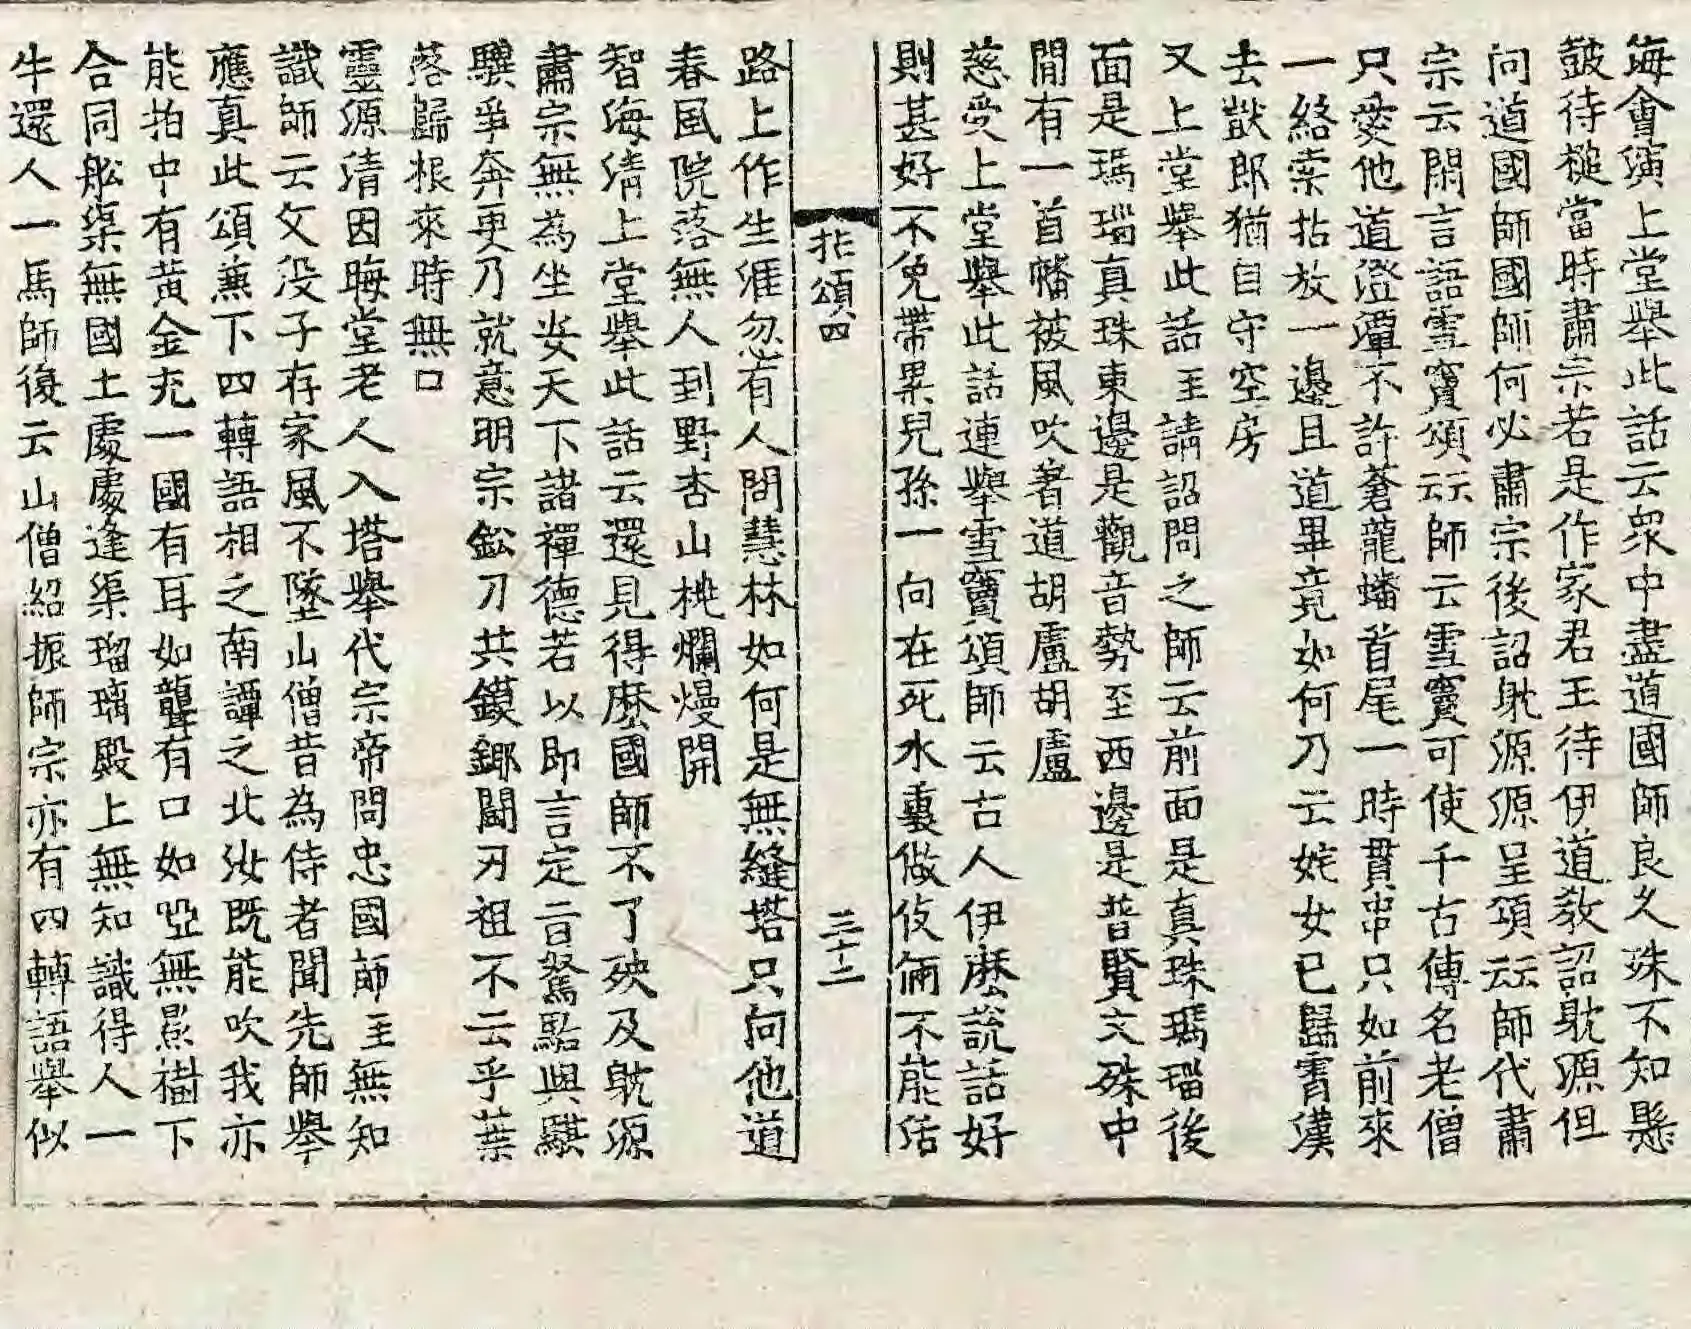 海會演上堂舉此話云衆中盡道國師良久殊不知懸
皷待槌當時肅宗若是作家君王待伊道教詔耽源但
問道國師國師何必肅宗後詔耽源源呈頌云云師代肅
宗云閑言語雪竇頌云云師云雪竇可使千古傳名老僧
只愛他道澄潭不許蒼龍蟠首尾一時貫串只如前來
一絡索拈放一邊且道畢竟如何乃云姹女已歸霄漢
去獃郎猶自守空房
又上堂舉此話至請詔問之師云前面是真珠瑪瑙後
面是瑪瑙真珠東邊是觀音勢至西邊是普賢文殊中
間有一首幡被風吹著道胡盧胡盧
慈受上堂舉此話連舉雪竇頌師云古人伊麽說話好
則甚好不免帶累兒孫一向在死水裏做伎倆不能活
拈頌四 三十二
路上作生涯忽有人問慧林如何是無縫塔只向他道
春風院落無人到野杏山桃爛熳開
智海清上堂舉此話云還見得麽國師不了殃及躭源
肅宗無為坐安天下諸禪德若以即言定旨駑駘與騏
驥爭奔更乃就意明宗鈆刀共鏌鎁闘刃祖不云乎葉
落歸根來時無口
靈源清因晦堂老人入塔舉代宗帝問忠國師至無知
識師云父没子存家風不墜山僧昔為侍者聞先師舉
應真此頌兼下四轉語相之南譚之北汝既能吹我亦
能拍中有黄金充一國有耳如聾有口如啞無影樹下
合同舩渠無國土處處逢渠瑠璃殿上無知識得人一
牛還人一馬師復云山僧紹振師宗亦有四轉語舉似